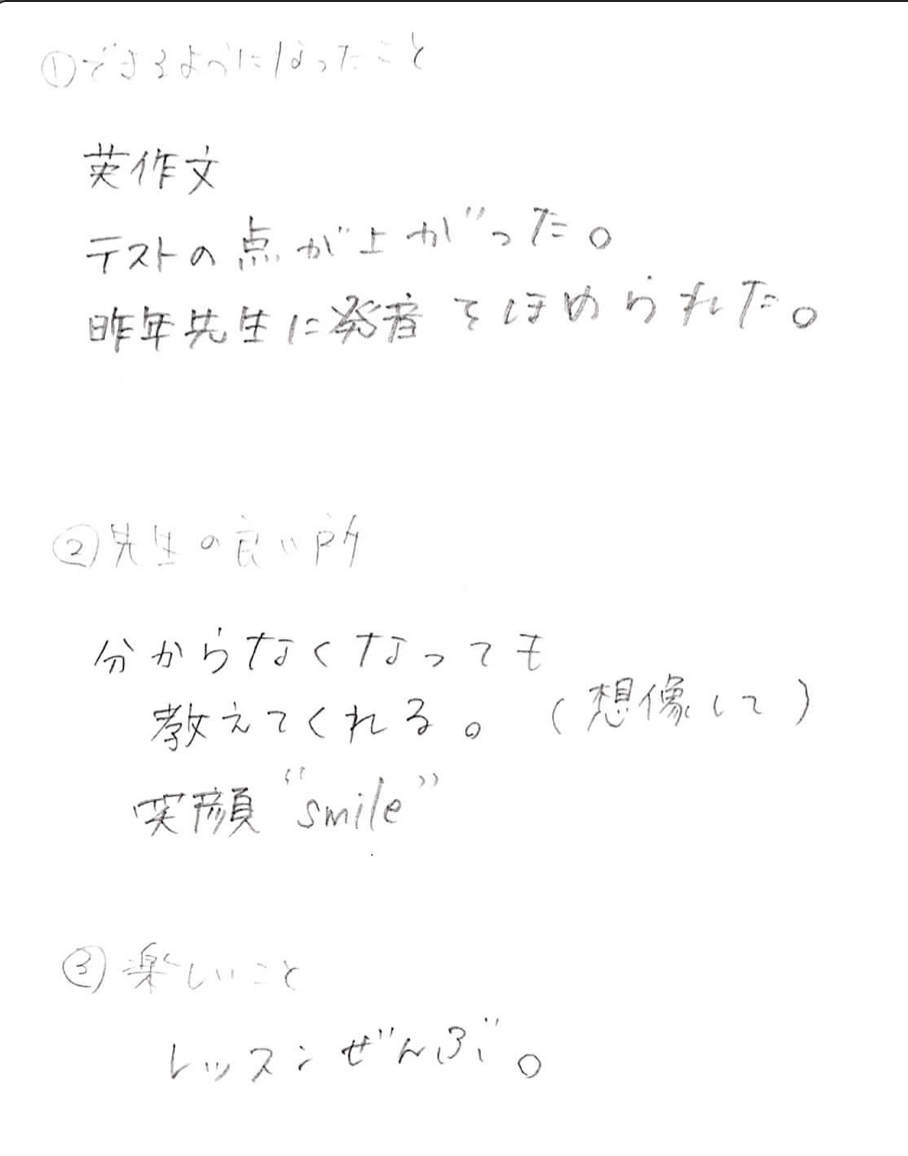 ①できるようになったこと
英作文
テストの点が上がった。
昨年先生に発音をほめられた。
②先生の良い所
分からなくなっても
教えてくれる。(想像して)
笑顔 “smile”
③楽しいこと
レッスンぜんぶ。